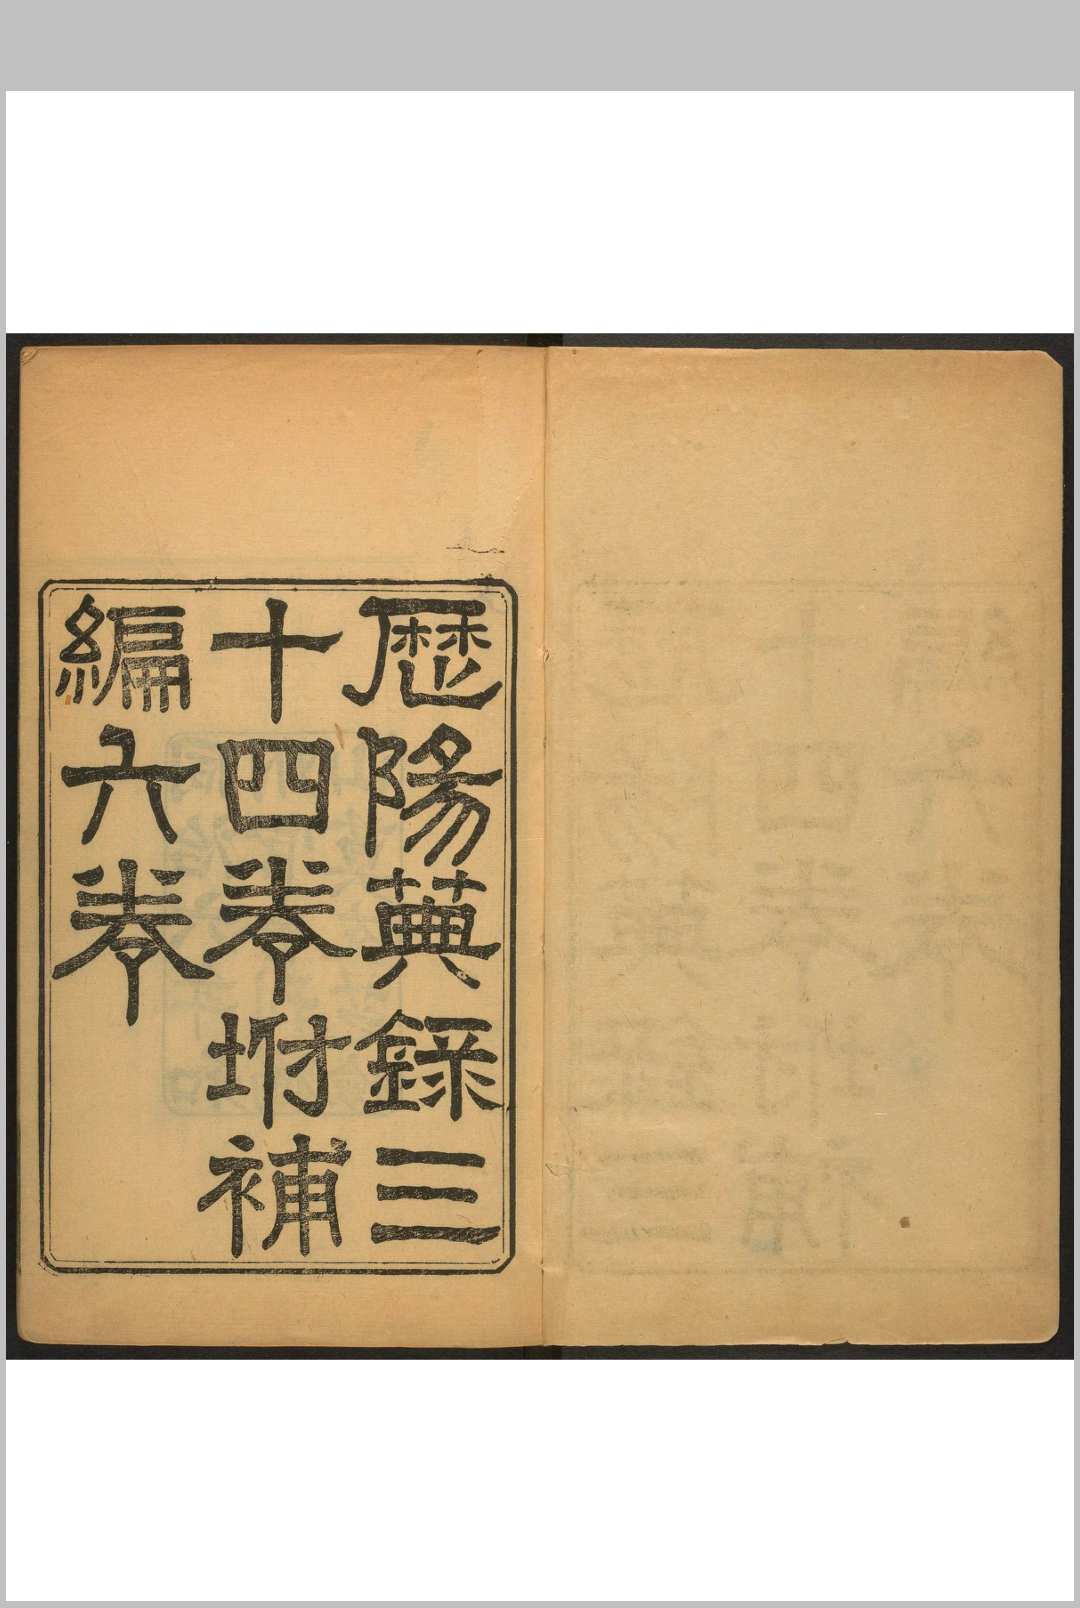 歷陽蕪錄三
十四卷坿補
編六卷